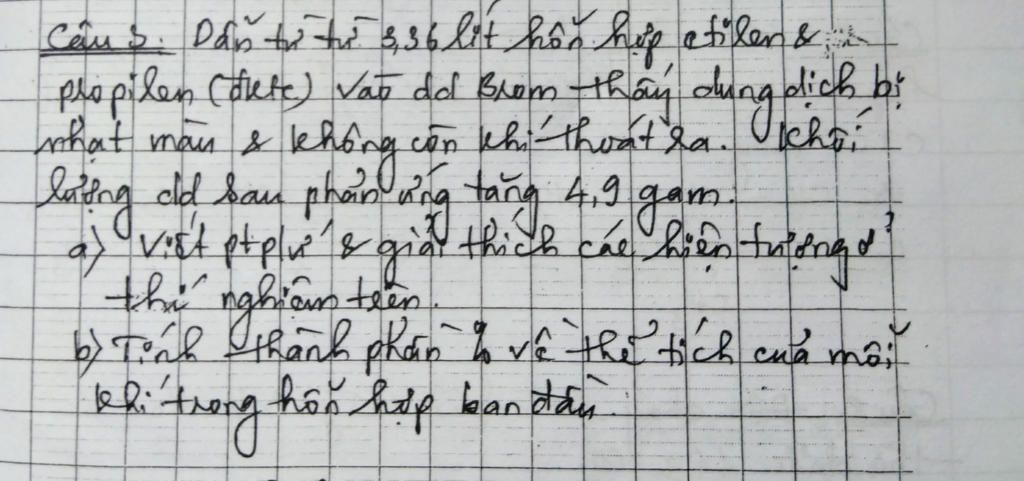 Câu 3. Dẫn từ từ 3,36 lít hỗn hợp etilen &
propilen (đktc) vào dd Brom thấy dung dịch bị
nhạt màu & không còn khí thoát ra. Khối
lượng dd sau phản ứng tăng 4,9 gam.
a) Viết ptpứ & giải thích các hiện tượng ở
thí nghiệm trên.
b) Tính thành phần % về thể tích của mỗi
khí trong hỗn hợp ban đầu